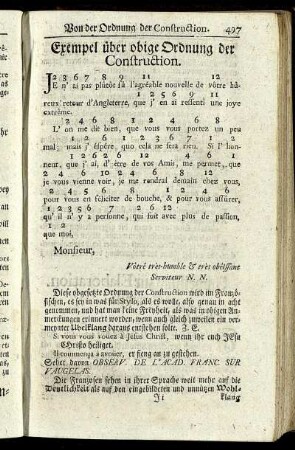 Von der Ordnung der Construction. 497
Exempel über obige Ordnung der
Construction.
2 3 6 7 8 9 11 12
JE n'ai pas plûtôt sû l'agréable nouvelle de vôtre hû-
1 2 5 6 9 11
reux retour d'Angleterre, que j'en ai ressenti une joye
extrême.
2 4 6 8 1 2 4 6 8
L'on me dit bien, que vous vous portez un peu
12 1 2 6 7 1 2 6 7 12
mal; mais j'éspére, que cela ne sera rien. Si l'hon-
1 2 6 2 6 12 4 6 1
nent, que j'ai, d'être de vos Amis, me permet, que
2 4 6 10 2 4 6 8 12
je vous vienne voir, je me rendrai demain chez vous,
2 4 5 6 8 12 4 6
pour vous en féliciter de bouche, & pour vous assûrer,
1 2 3 5 6 7 2 6 11
qu'il n'y a personne, qui soit avec plus de passion,
12
que moi,
Monsieur,
Vôtre très-humble & très obéïssant
Serviteur N. N.
Diese obgesetzte Ordnung der Construction wird im Franzö-
sischen, es sey in was für Stylo, als es wolle, also genau in acht
genommen, und hat man keine Freyheit, als was in obigen An-
merckungen erinnert worden, wenn auch gleich zuweilen ein ver-
meynter Ubelklang daraus entstehen solte. Z. E.
S. vous vous vouez à Jesus Christ, wenn ihr euch JEsu
Christo heiliget.
Il commença à avoüer, er fieng an zu gestehen.
Sehet davon OBSERV. DE L'ACAD. FRANC. SUR
VAUGELAS.
Die Franzosen sehen in ihrer Sprache weit mehr auf die
Deutlichkeit als auf den eingebildeten und unnützen Wohl-
Ii klang